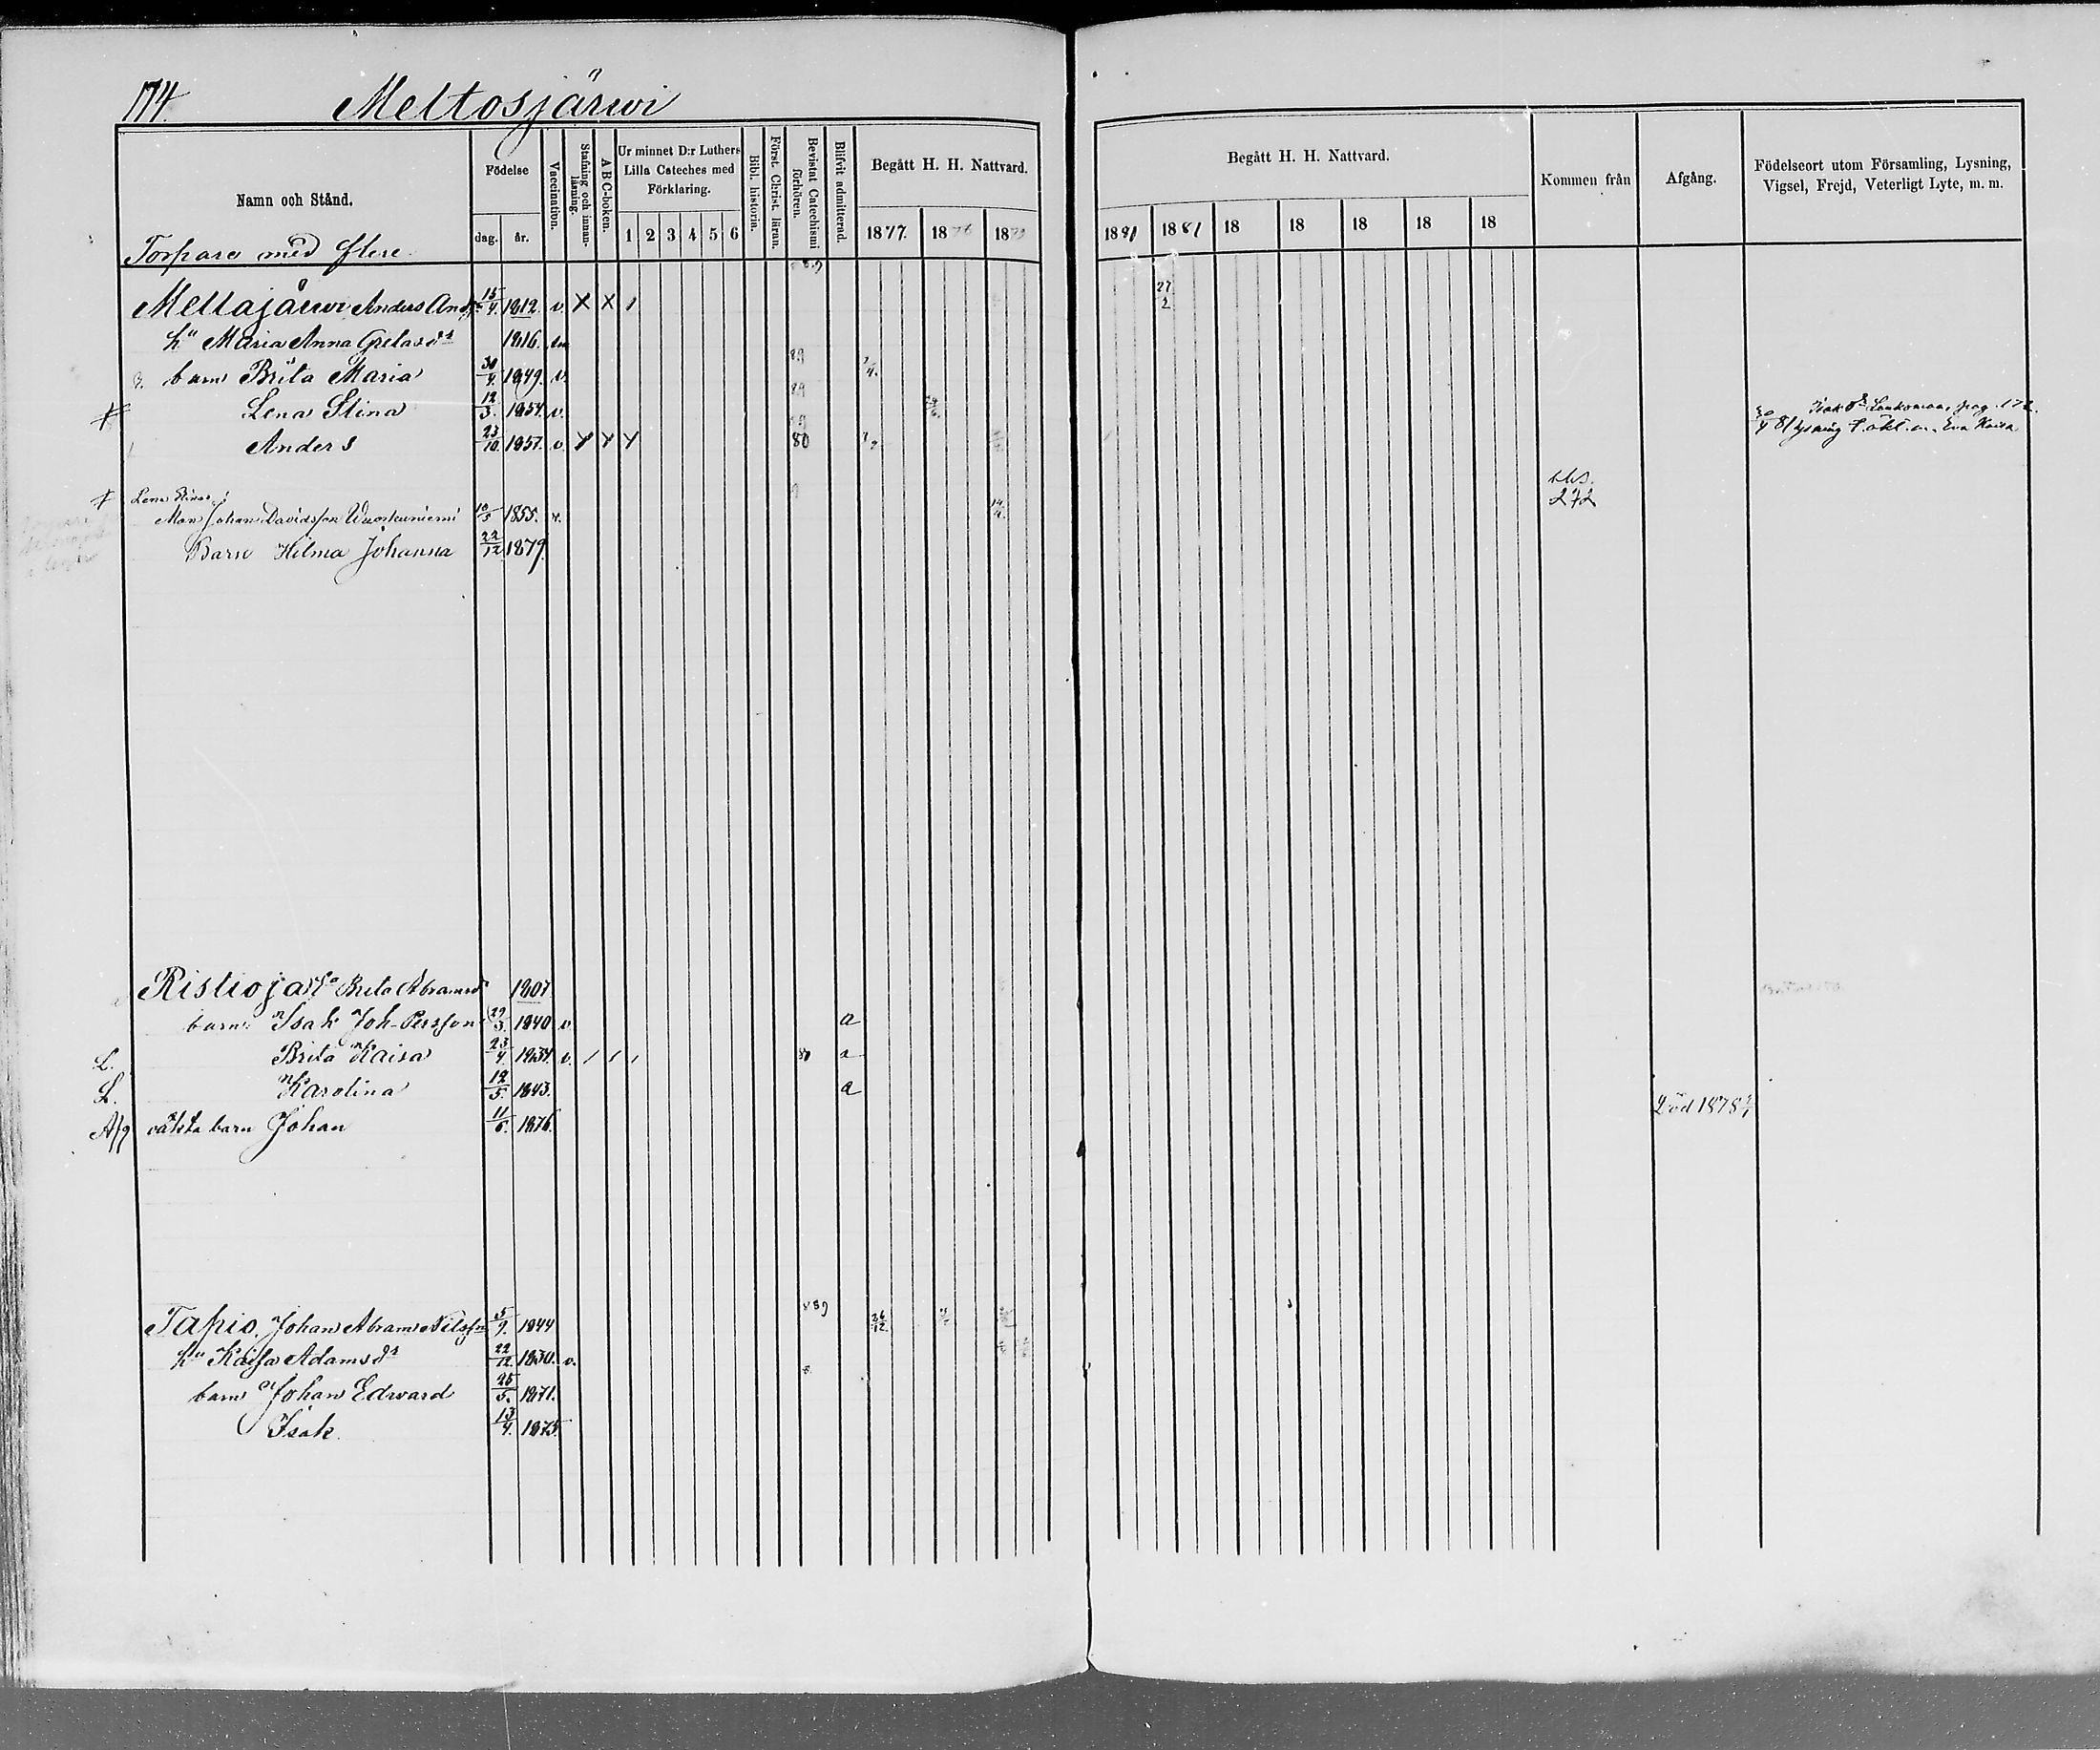 174.
Meltosjärwi
Namn och Stånd.
Födelse
dag.
år.
Vaccination.
Stafning och innan-läsning.
ABC-boken.
Ur minnet D:r Luthers
Lilla Cateches med
Förklaring.
1 2 3 4 5 6
Bibl. historia.
Först. Christ. läran.
Bevistat Catechismi förhören.
Blifvit admitterad.
Begått H. H. Nattvard.
1877. 1878 1879
Begått H. H. Nattvard.
1881 18 18 18 18 18
Kommen från
Afgång.
Födelseort utom Församling, Lysning,
Vigsel, Frejd, Veterligt Lyte, m. m.
Torpare med flere
Mellajärwi Anders And. 15/4. 1812. v. X X 1 27/2
hu Maria Anna Gretasdr 1816.
barn Brita Maria 30/4. 1849. v. 89
Lena Stina 12/3. 1854. v. 89
Anders 23/10. 1857. v. X X X 80 lysning Eva Kaisa
Isak pag. 172.
Lena Stinas
Man Johan Davidsson 10/5 1855. v. 14/4. 272
Barn Hilma Johanna 22/12 1879.
Ristioja Ea Brita Abramsdr 1807
barn: Isak Joh. Persson 29/3. 1840 v. a
L. Brita Kaisa 23/4. 1834. v. 1 1 1 80 a
L. Karolina 12/5. 1843. a
Afg oäkta barn Johan 11/6. 1876. Död 1878
Tapio. Johan Abram Nilsson 5/9. 1844 889 26/12.
hu Kaisa Adamsdr 22/12. 1830. v.
barn Johan Edward 25/5. 1871.
Isak. 13/4. 1875.